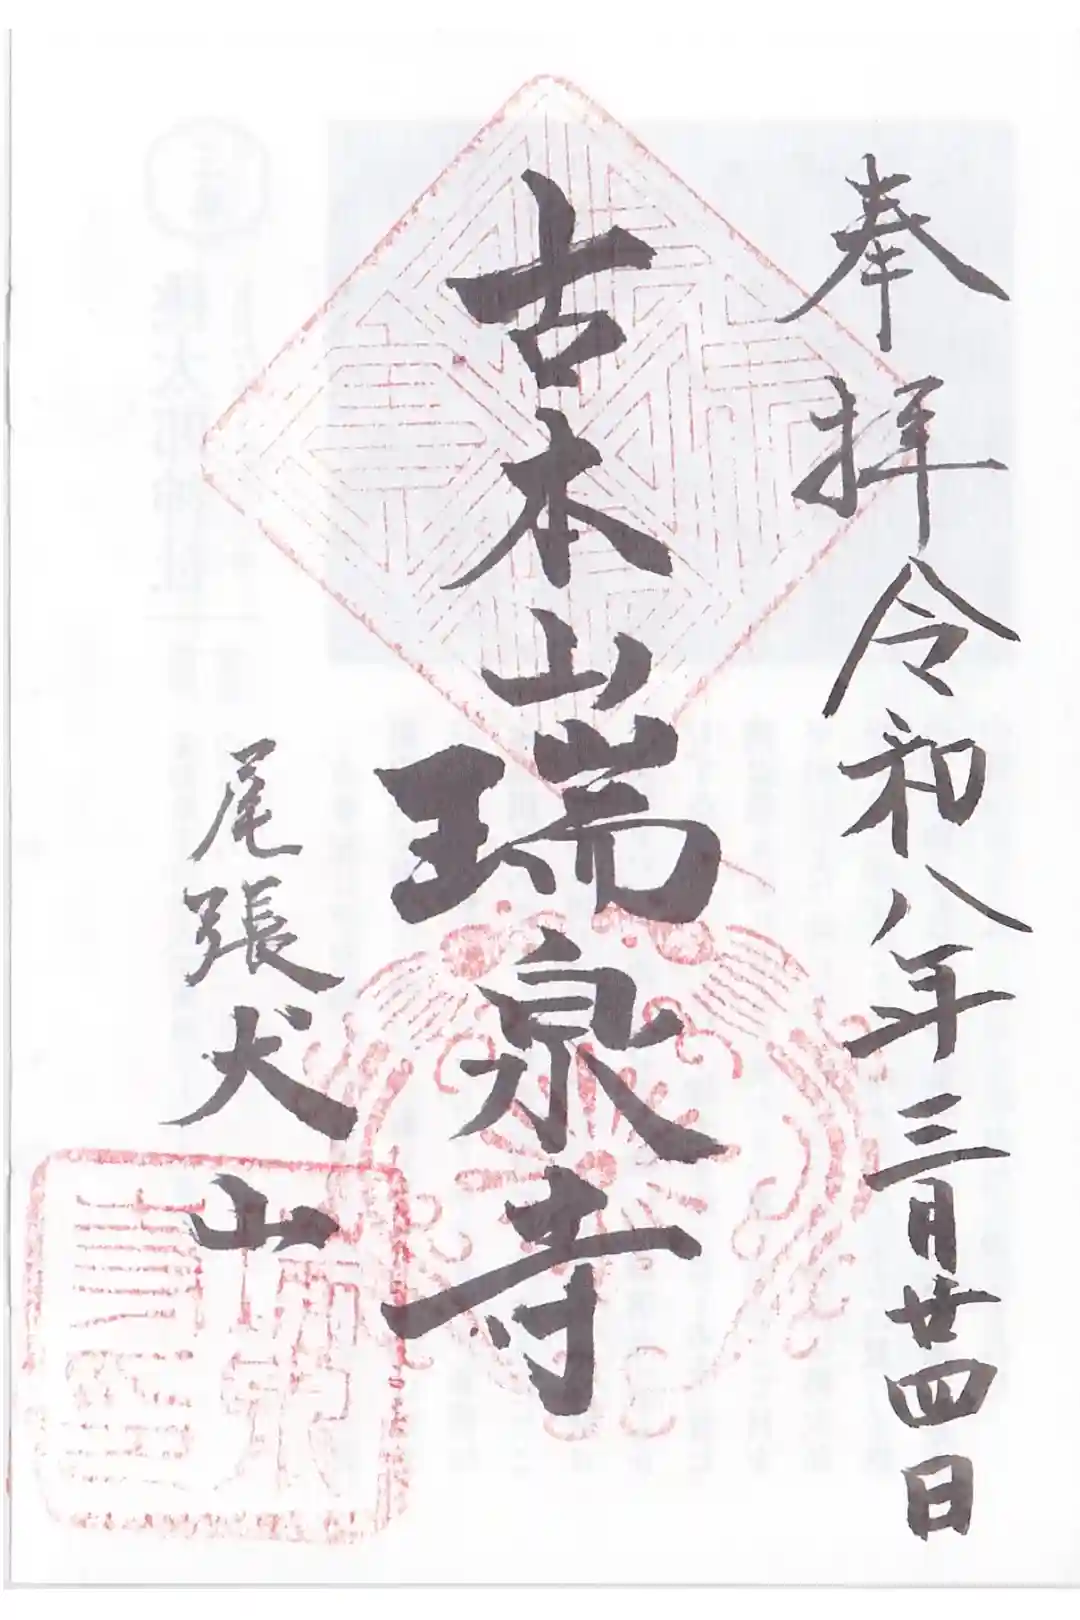 奉拝 令和八年三月廿四日
古木山瑞泉寺
尾張犬山